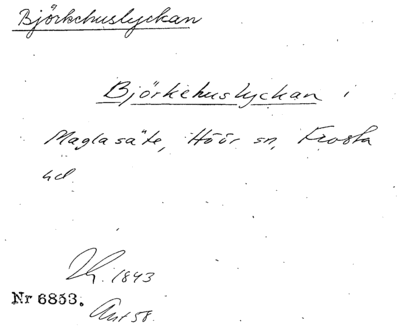 Björkehuslyckan
Björkehuslyckan i
Maglasäte, Höör sn, Frosta
hd
1843
Nr 6853.
Ant 58.